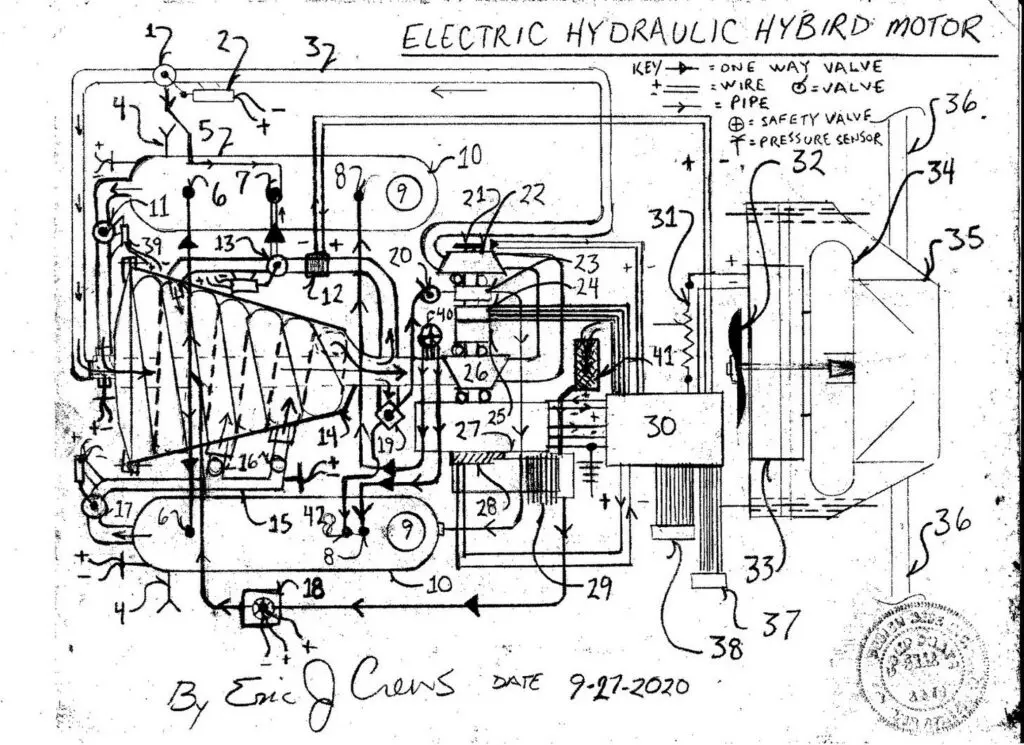 ELECTRIC HYDRAULIC HYBIRD MOTOR
KEY = ONE WAY VALVE
+ - = WIRE = VALVE
= PIPE
= SAFETY VALVE
= PRESSURE SENSOR
1
2
3
4
5
- +
36
10
6
7
8
9
32
34
11
21
22
+ -
39
13
- +
31
35
12
20
23
24
40
26
41
14
19
25
30
16
27
17
28
6
15
42
8
9
33
36
4
18
10
29
38
37
- + +
By Eric J Crews DATE 9-27-2020